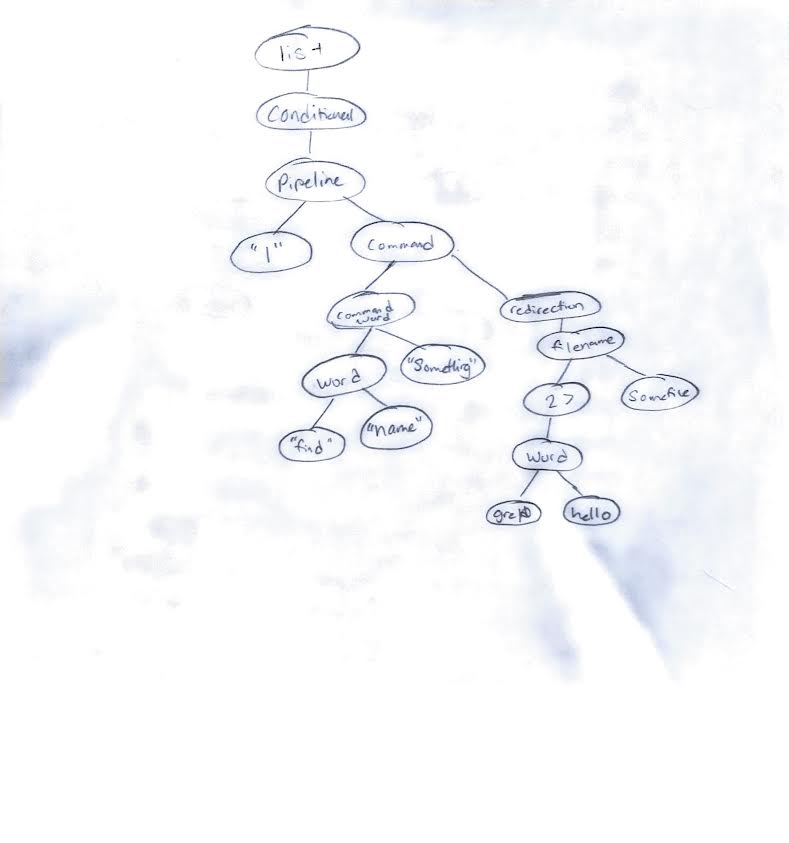 list
Conditional
Pipeline
"|"
Command
command
word
redirection
filename
word
"Something"
2>
Somefile
"find"
"name"
Word
grep
hello